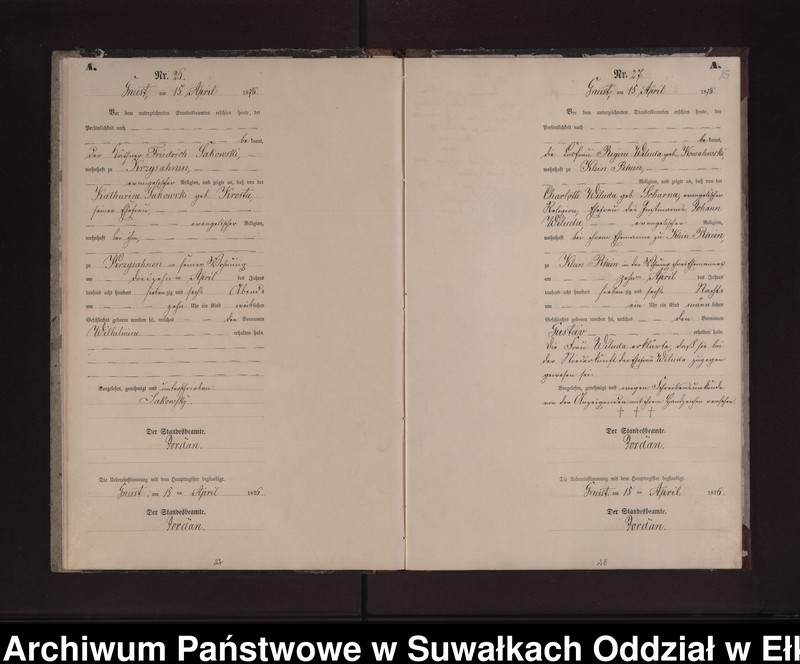 A.
Nr. 26.
Gneist, am 15 April 1876
Vor dem unterzeichneten Standesbeamten erschien heute, der
Persönlichkeit nach
be kannt,
der Friedrich Sakowski,
wohnhaft zu Krzysahnen,
evangelischer Religion, und zeigte an, daß von der
Katharina Sakowski geb.
seiner Ehefrau,
evangelischer Religion,
wohnhaft bei ihm,
zu Krzysahnen in seiner Wohnung
am dreizehn ten April des Jahres
tausend acht hundert siebenzig und sechs Abends
um zehn Uhr ein Kind weiblichen
Geschlechts geboren worden sei, welches den Vornamen
Wilhelmine erhalten habe.
Vorgelesen, genehmigt und unterschrieben
Sakowski.
Der Standesbeamte.
Jordan.
Die Uebereinstimmung mit dem Hauptregister beglaubigt.
Gneist, am 15 ten April 1876.
Der Standesbeamte.
Jordan.
27
A.
15
Nr. 27
Gneist, am 15 April 1876
Vor dem unterzeichneten Standesbeamten erschien heute, der
Persönlichkeit nach
be kannt,
die Regine Wiluda geb. Kowalewski,
wohnhaft zu Klein Rhein,
Religion, und zeigte an, daß von der
Charlotte Wiluda geb. evangelischer
Religion, Ehefrau des Instmanns Johann
Wiluda, evangelischer Religion,
wohnhaft bei ihrem Ehemanne zu Klein Rhein,
zu Klein Rhein in der Wohnung ihres Ehemannes
am zehn ten April des Jahres
tausend acht hundert siebenzig und sechs Nachts
um ein Uhr ein Kind männlichen
Geschlechts geboren worden sei, welches den Vornamen
Gustav erhalten habe.
Die Frau Wiluda erklärte, daß sie bei
der Niederkunft der Ehefrau Wiluda zugegen
gewesen sei.
Vorgelesen, genehmigt und wegen Schreibensunkunde
von der Anzeigenden mit ihrem Handzeichen versehen
† † †
Der Standesbeamte.
Jordan.
Die Uebereinstimmung mit dem Hauptregister beglaubigt.
Gneist, am 15 ten April 1876.
Der Standesbeamte.
Jordan.
28
Archiwum Państwowe w Suwałkach Oddział w Ełk